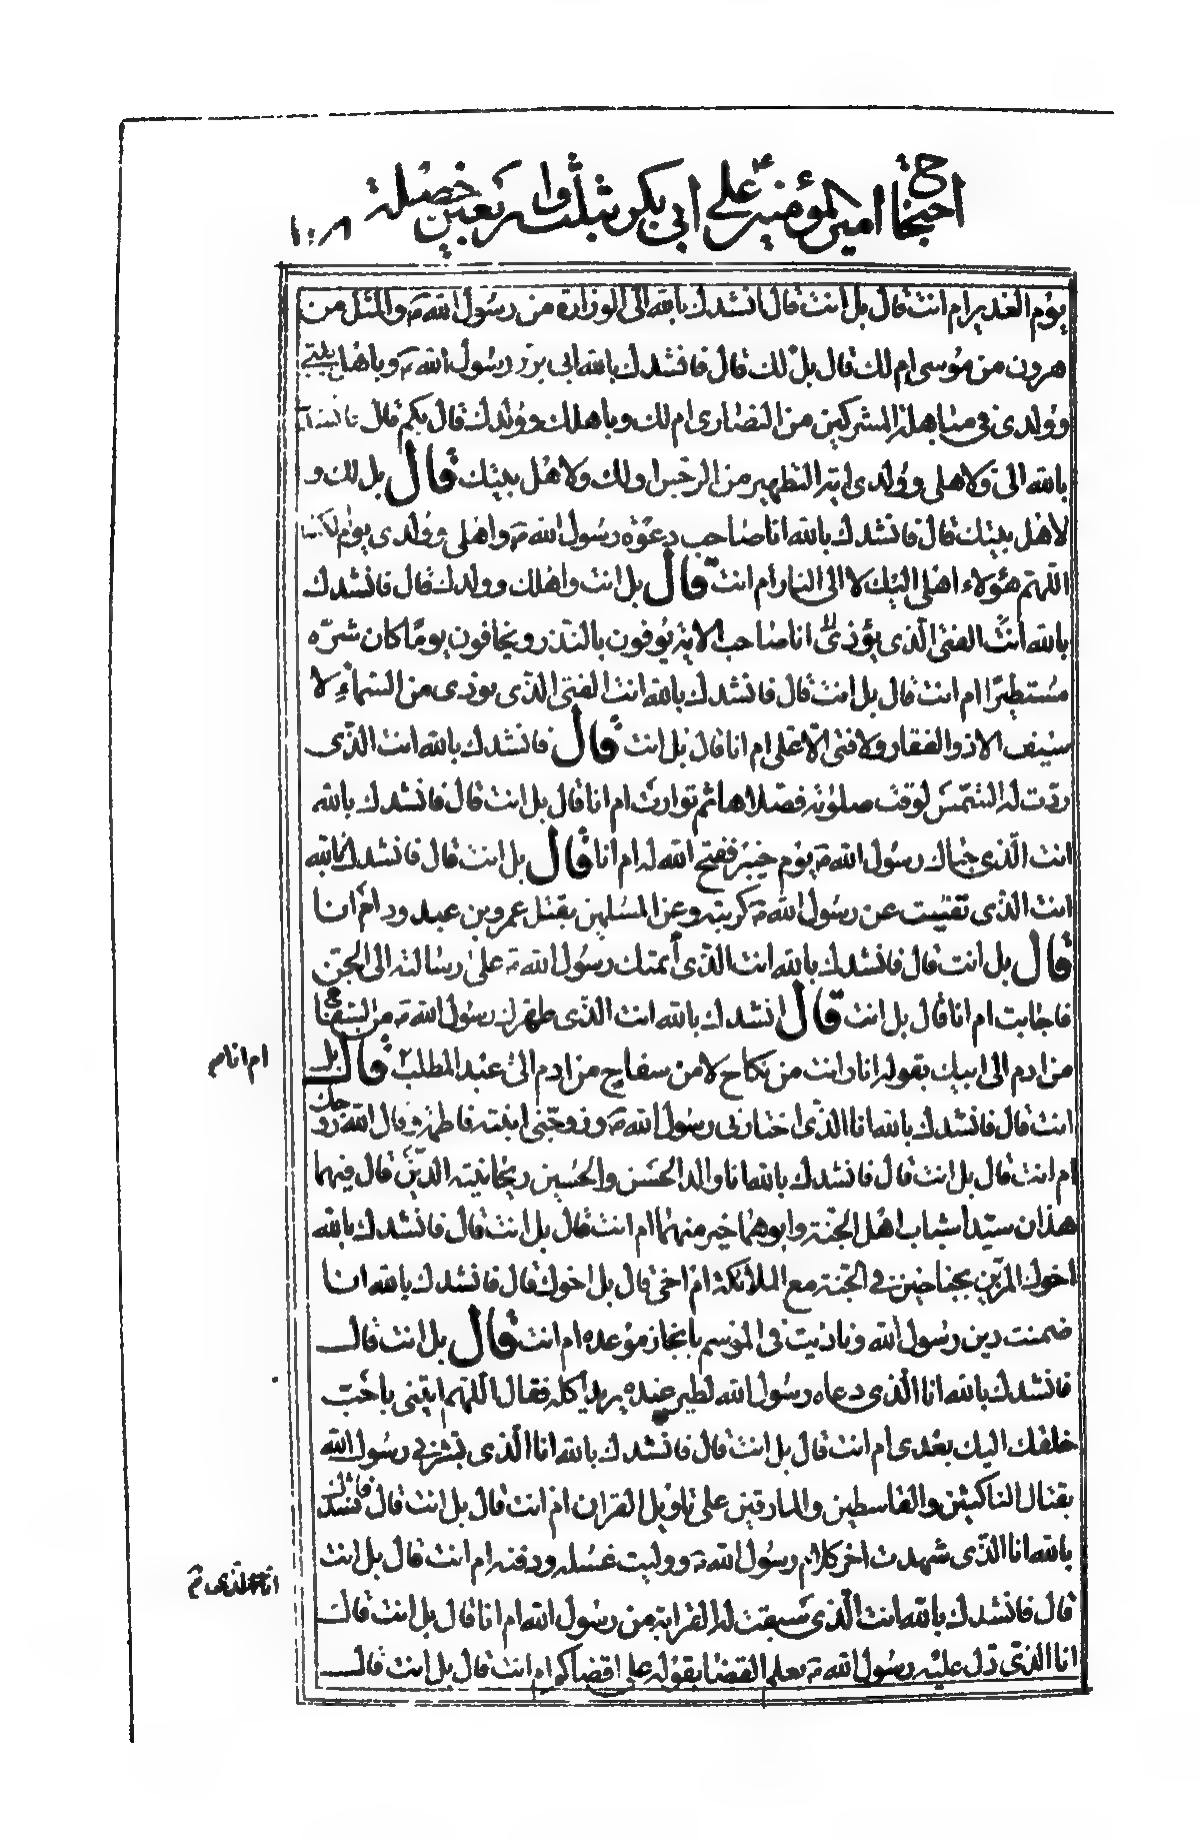 احتجاج امير المؤمنين ع على ابى بكر بثلث واربعين خصلة
١٠٨
يوم الغدير ام انت قال بل انت قال انشدك بالله الى الوزارة من رسول الله ص والمثل من
هرون من موسى ام لك قال بل لك قال فانشدك بالله ابى برز رسول الله ص وباهل بيتى
وولدى فى مباهلة المشركين من النصارى ام لك وباهلك وولدك قال بكم قال فانشدك
بالله الى ولاهلى وولدى اية التطهير من الرجس ام لك ولاهل بيتك قال بل لك و
لاهل بيتك قال فانشدك بالله انا صاحب دعوة رسول الله ص واهلى وولدى يوم الكسا
اللهم هؤلاء اهلى اليك لا الى النار ام انت قال بل انت واهلك وولدك قال فانشدك
بالله انت الفتى الذى يؤذى انا صاحب الاية يوفون بالنذر ويخافون يوما كان شره
مستطيرا ام انت قال بل انت قال فانشدك بالله انت الفتى الذى نودى من السماء لا
سيف الا ذو الفقار ولا فتى الا على ام انا قال بل انت قال فانشدك بالله انت الذى
ردت له الشمس لوقت صلوته فصلاها ثم توارت ام انا قال بل انت قال فانشدك بالله
انت الذى حباك رسول الله ص يوم خيبر ففتح الله له ام انا قال بل انت قال فانشدك بالله
انت الذى نفست عن رسول الله ص كربته وعن المسلمين بقتل عمرو بن عبد ود ام انا
قال بل انت قال فانشدك بالله انت الذى أيمتك رسول الله ص على رسالته الى الجن
فاجابت ام انا قال بل انت قال انشدك بالله انت الذى طهرك رسول الله ص من السفاح
من ادم الى ابيك بقوله انا وانت من نكاح لا من سفاح من ادم الى عبد المطلب قال بل
ام انا م
انت قال فانشدك بالله انا الذى اختارنى رسول الله ص وزوجنى ابنته فاطمة وقال الله زوجك
ام انت قال بل انت قال فانشدك بالله انا والد الحسن والحسين ريحانتيه الذين قال فيهما
هذان سيدا شباب اهل الجنة وابوهما خير منهما ام انت قال بل انت قال فانشدك بالله
اخوك المزين بجناحين فى الجنة مع الملائكة ام اخى قال بل اخوك قال فانشدك بالله انا
ضمنت دين رسول الله وناديت فى الموسم بانجاز موعده ام انت قال بل انت قال
فانشدك بالله انا الذى دعاه رسول الله لطير عنده يريد اكله فقال اللهم ايتنى باحب
خلقك اليك بعدى ام انت قال بل انت قال فانشدك بالله انا الذى بشرنى رسول الله
بقتال الناكثين والقاسطين والمارقين على تاويل القران ام انت قال بل انت قال فانشدك
بالله انا الذى شهدت اخر كلام رسول الله ص ووليت غسله ودفنه ام انت قال بل انت
انا الذى م
قال فانشدك بالله انت الذى سبقت له القرابة من رسول الله ام انا قال بل انت قال
انا الذى دل عليه رسول الله ص بعلم القضا بقوله على اقضاكم ام انت قال بل انت قال